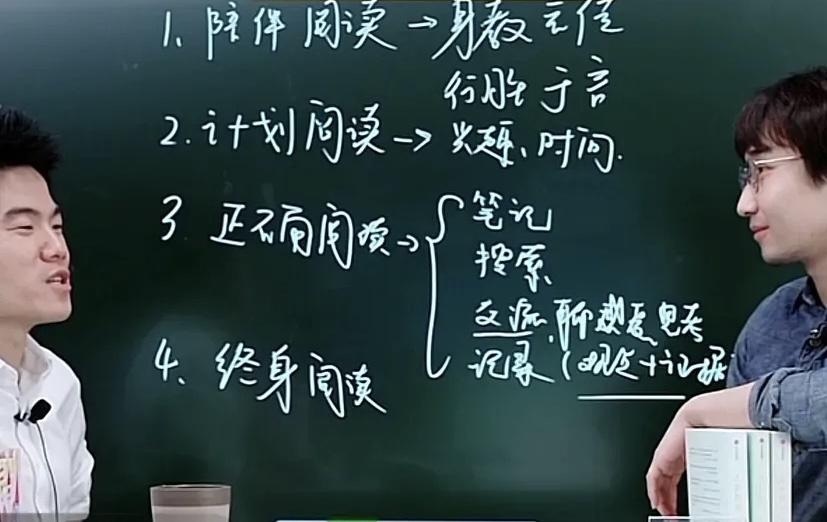 1、陪伴阅读→身教言传
行胜于言
2.计划阅读→兴趣、时间.
3 正确阅读→
笔记
探索
交流、聊
记录(观点+证据
4、终身阅读